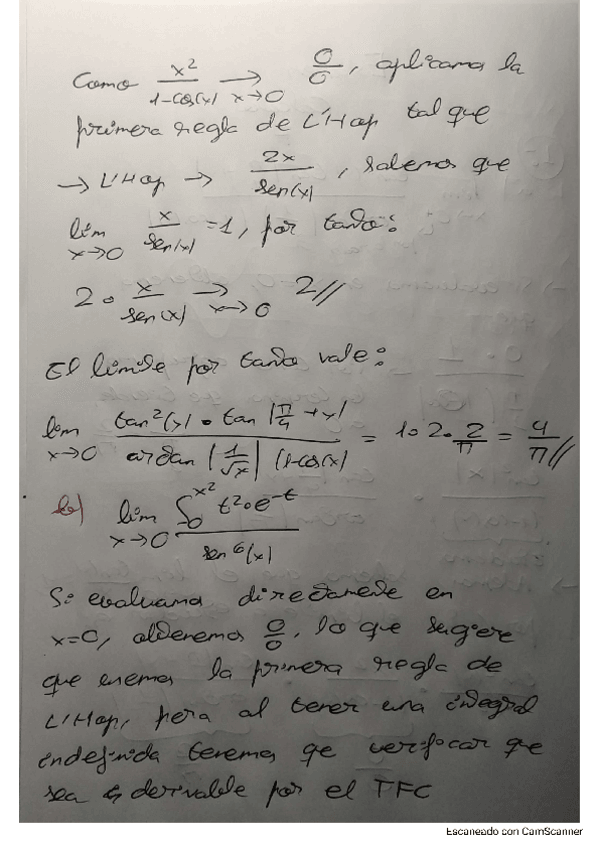 Como x²/(1-cos(x)) → x→0 0/0, aplicamos la
primera regla de L'Hop tal que
→ L'Hop → 2x/sen(x), sabemos que
lím x→0 x/sen(x) = 1, por tanto:
2 · x/sen(x) → x→0 2//
El límite por tanto vale:
lím x→0 (tan²(x) · tan(π/4 + x))/(arctan(1/√x) (1-cos(x))) = 1 · 2 · 2/π = 4/π//
b) lím x→0 (∫₀^x² t² · e^-t)/(sen⁶(x))
Si evaluamos directamente en
x=0, obtenemos 0/0, lo que sugiere
que usemos la primera regla de
L'Hop, pero al tener una integral
indefinida tenemos que verificar que
sea derivable por el TFC
Escaneado con CamScanner